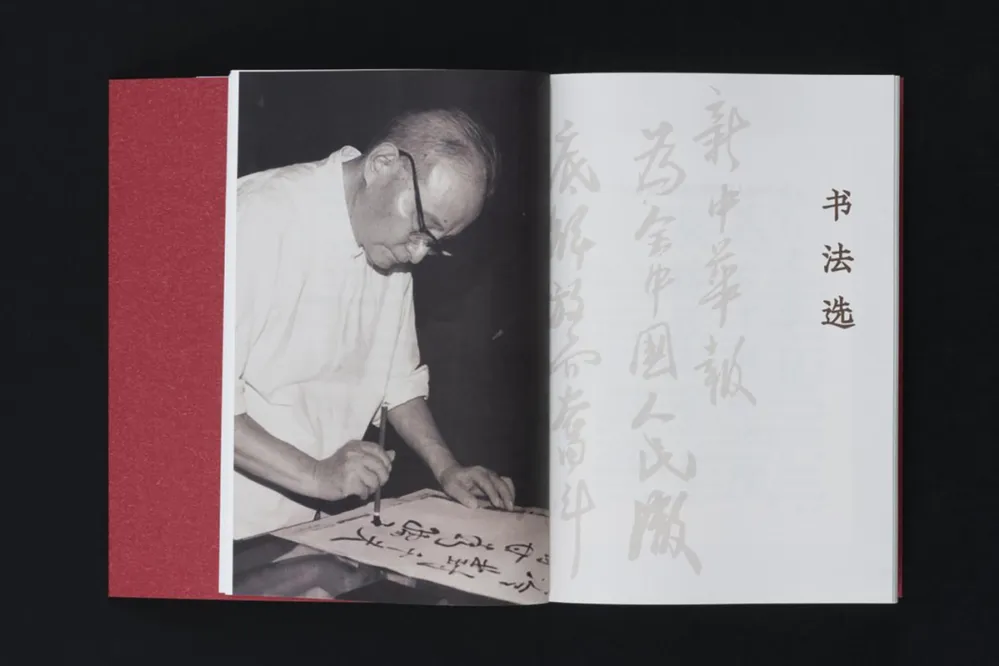 书法选
新中华報
为全中國人民澈
底解放而奮斗